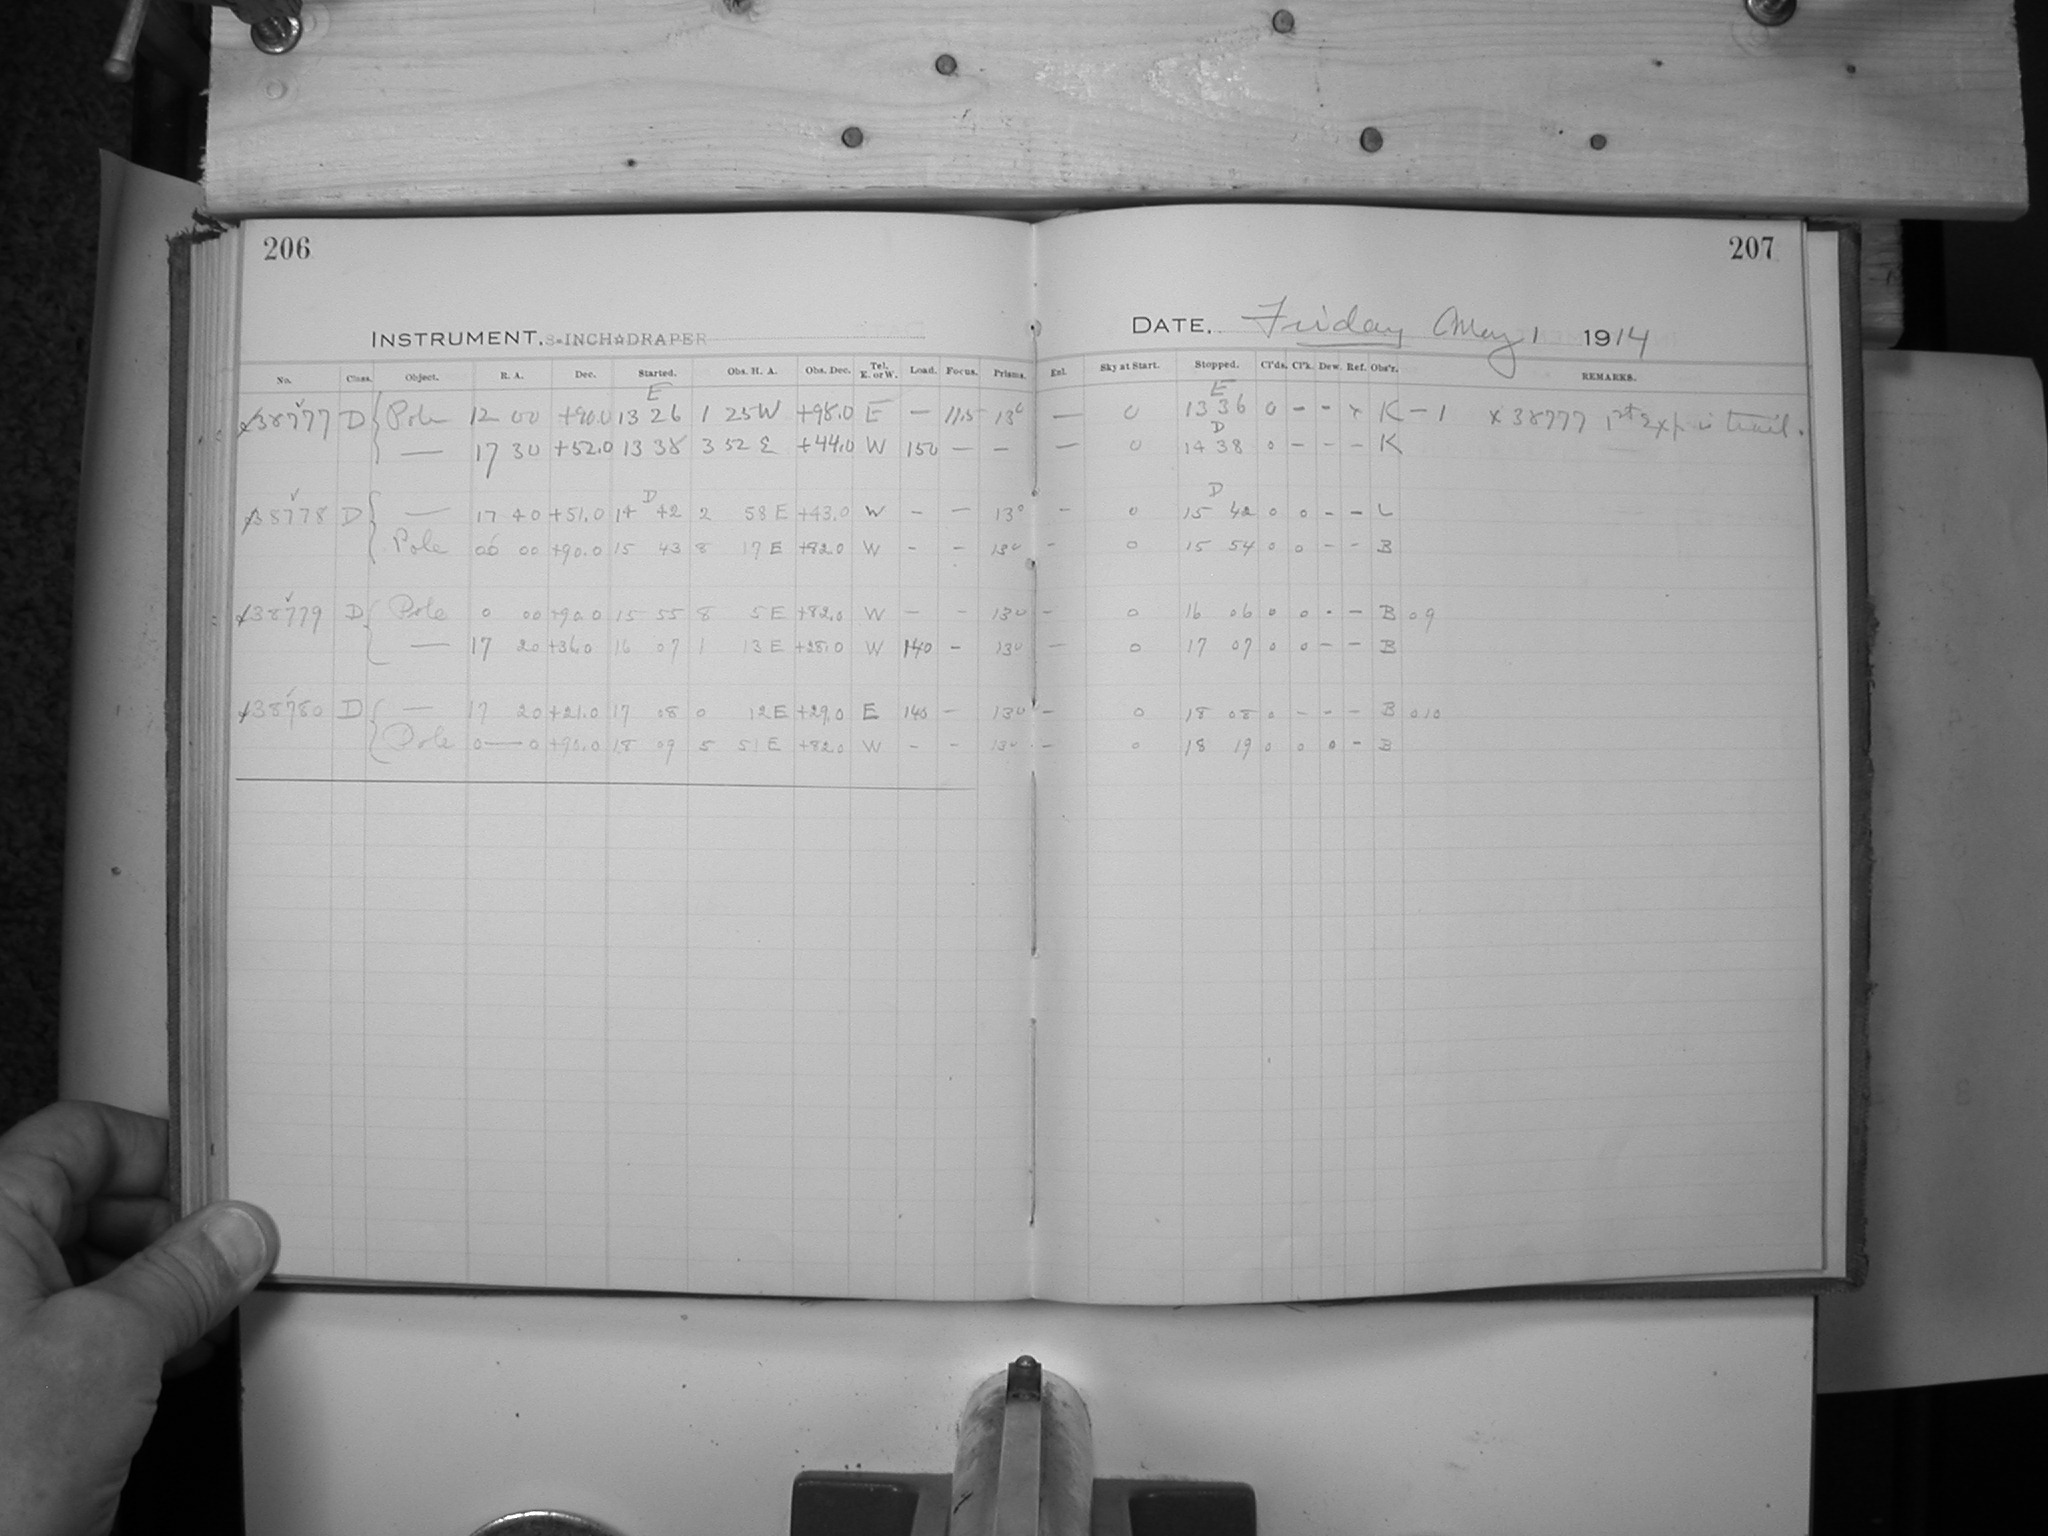 206
207
INSTRUMENT. 8-INCH☆DRAPER
DATE. Friday May 1 1914
No. Class. Object. R. A. Dec. Started. Obs. H. A. Obs. Dec. Tel. E. or W. Load. Focus. Prisms. Enl. Sky at Start. Stopped. Cl'ds. Cl'k. Dew. Ref. Obs'r. REMARKS.
E E
38777 D { Pole 12 00 +90.0 13 26 1 25 W +98.0 E — 11.5 13° — 0 13 36 0 - - x K - 1 x 38777 1st Exp is trail.
D
— 17 30 +52.0 13 38 3 52 E +44.0 W 150 — — — 0 14 38 0 - - - K
D D
38778 D { — 17 40 +51.0 14 42 2 58 E +43.0 W - - 13° - 0 15 42 0 0 - - L
Pole 00 00 +90.0 15 43 8 17 E +82.0 W - - 13° - 0 15 54 0 0 - - B
38779 D { Pole 0 00 +90.0 15 55 8 5 E +82.0 W - 13° - 0 16 06 0 0 - - B 09
— 17 20 +36.0 16 07 1 13 E +28.0 W 140 - 13° - 0 17 07 0 0 - - B
38780 D { — 17 20 +21.0 17 08 0 12 E +29.0 E 140 - 13° - 0 18 08 0 - - - B 010
Pole 0 — 0 +90.0 18 09 5 51 E +82.0 W - - 13° - 0 18 19 0 0 0 - B